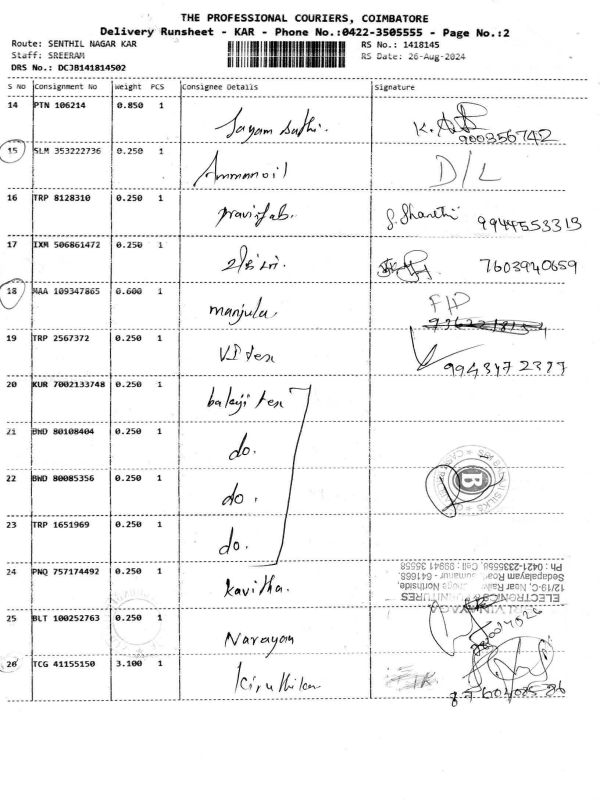 THE PROFESSIONAL COURIERS, COIMBATORE
Delivery Runsheet - KAR - Phone No.:0422-3505555 - Page No.:2
Route: SENTHIL NAGAR KAR RS No.: 1418145
Staff: SREERAM RS Date: 26-Aug-2024
DRS No.: DCJB141814502
S No Consignment No Weight PCS Consignee Details Signature
14 PTN 106214 0.850 1 Jayam
900356742
15 SLM 353222736 0.250 1 Ammanoil D/L
16 TRP 8128310 0.250 1 pravinfab. 9944553313
17 IXM 506861472 0.250 1 7603940659
18 MAA 109347865 0.600 1 manjula
19 TRP 2567372 0.250 1 V.P tex
9943472377
20 KUR 7002133748 0.250 1 balaji tex
21 BWD 80108404 0.250 1 do.
22 BWD 80085356 0.250 1 do. B
23 TRP 1651969 0.250 1 do.
24 PNQ 757174492 0.250 1 Kavitha.
Ph : 0421-2335558, Cell : 99941 35558
Sedapalayam Road, - 641668.
12/19-C, Near Northside,
25 BLT 100252763 0.250 1 Narayan
26 TCG 41155150 3.100 1 Kiruthika